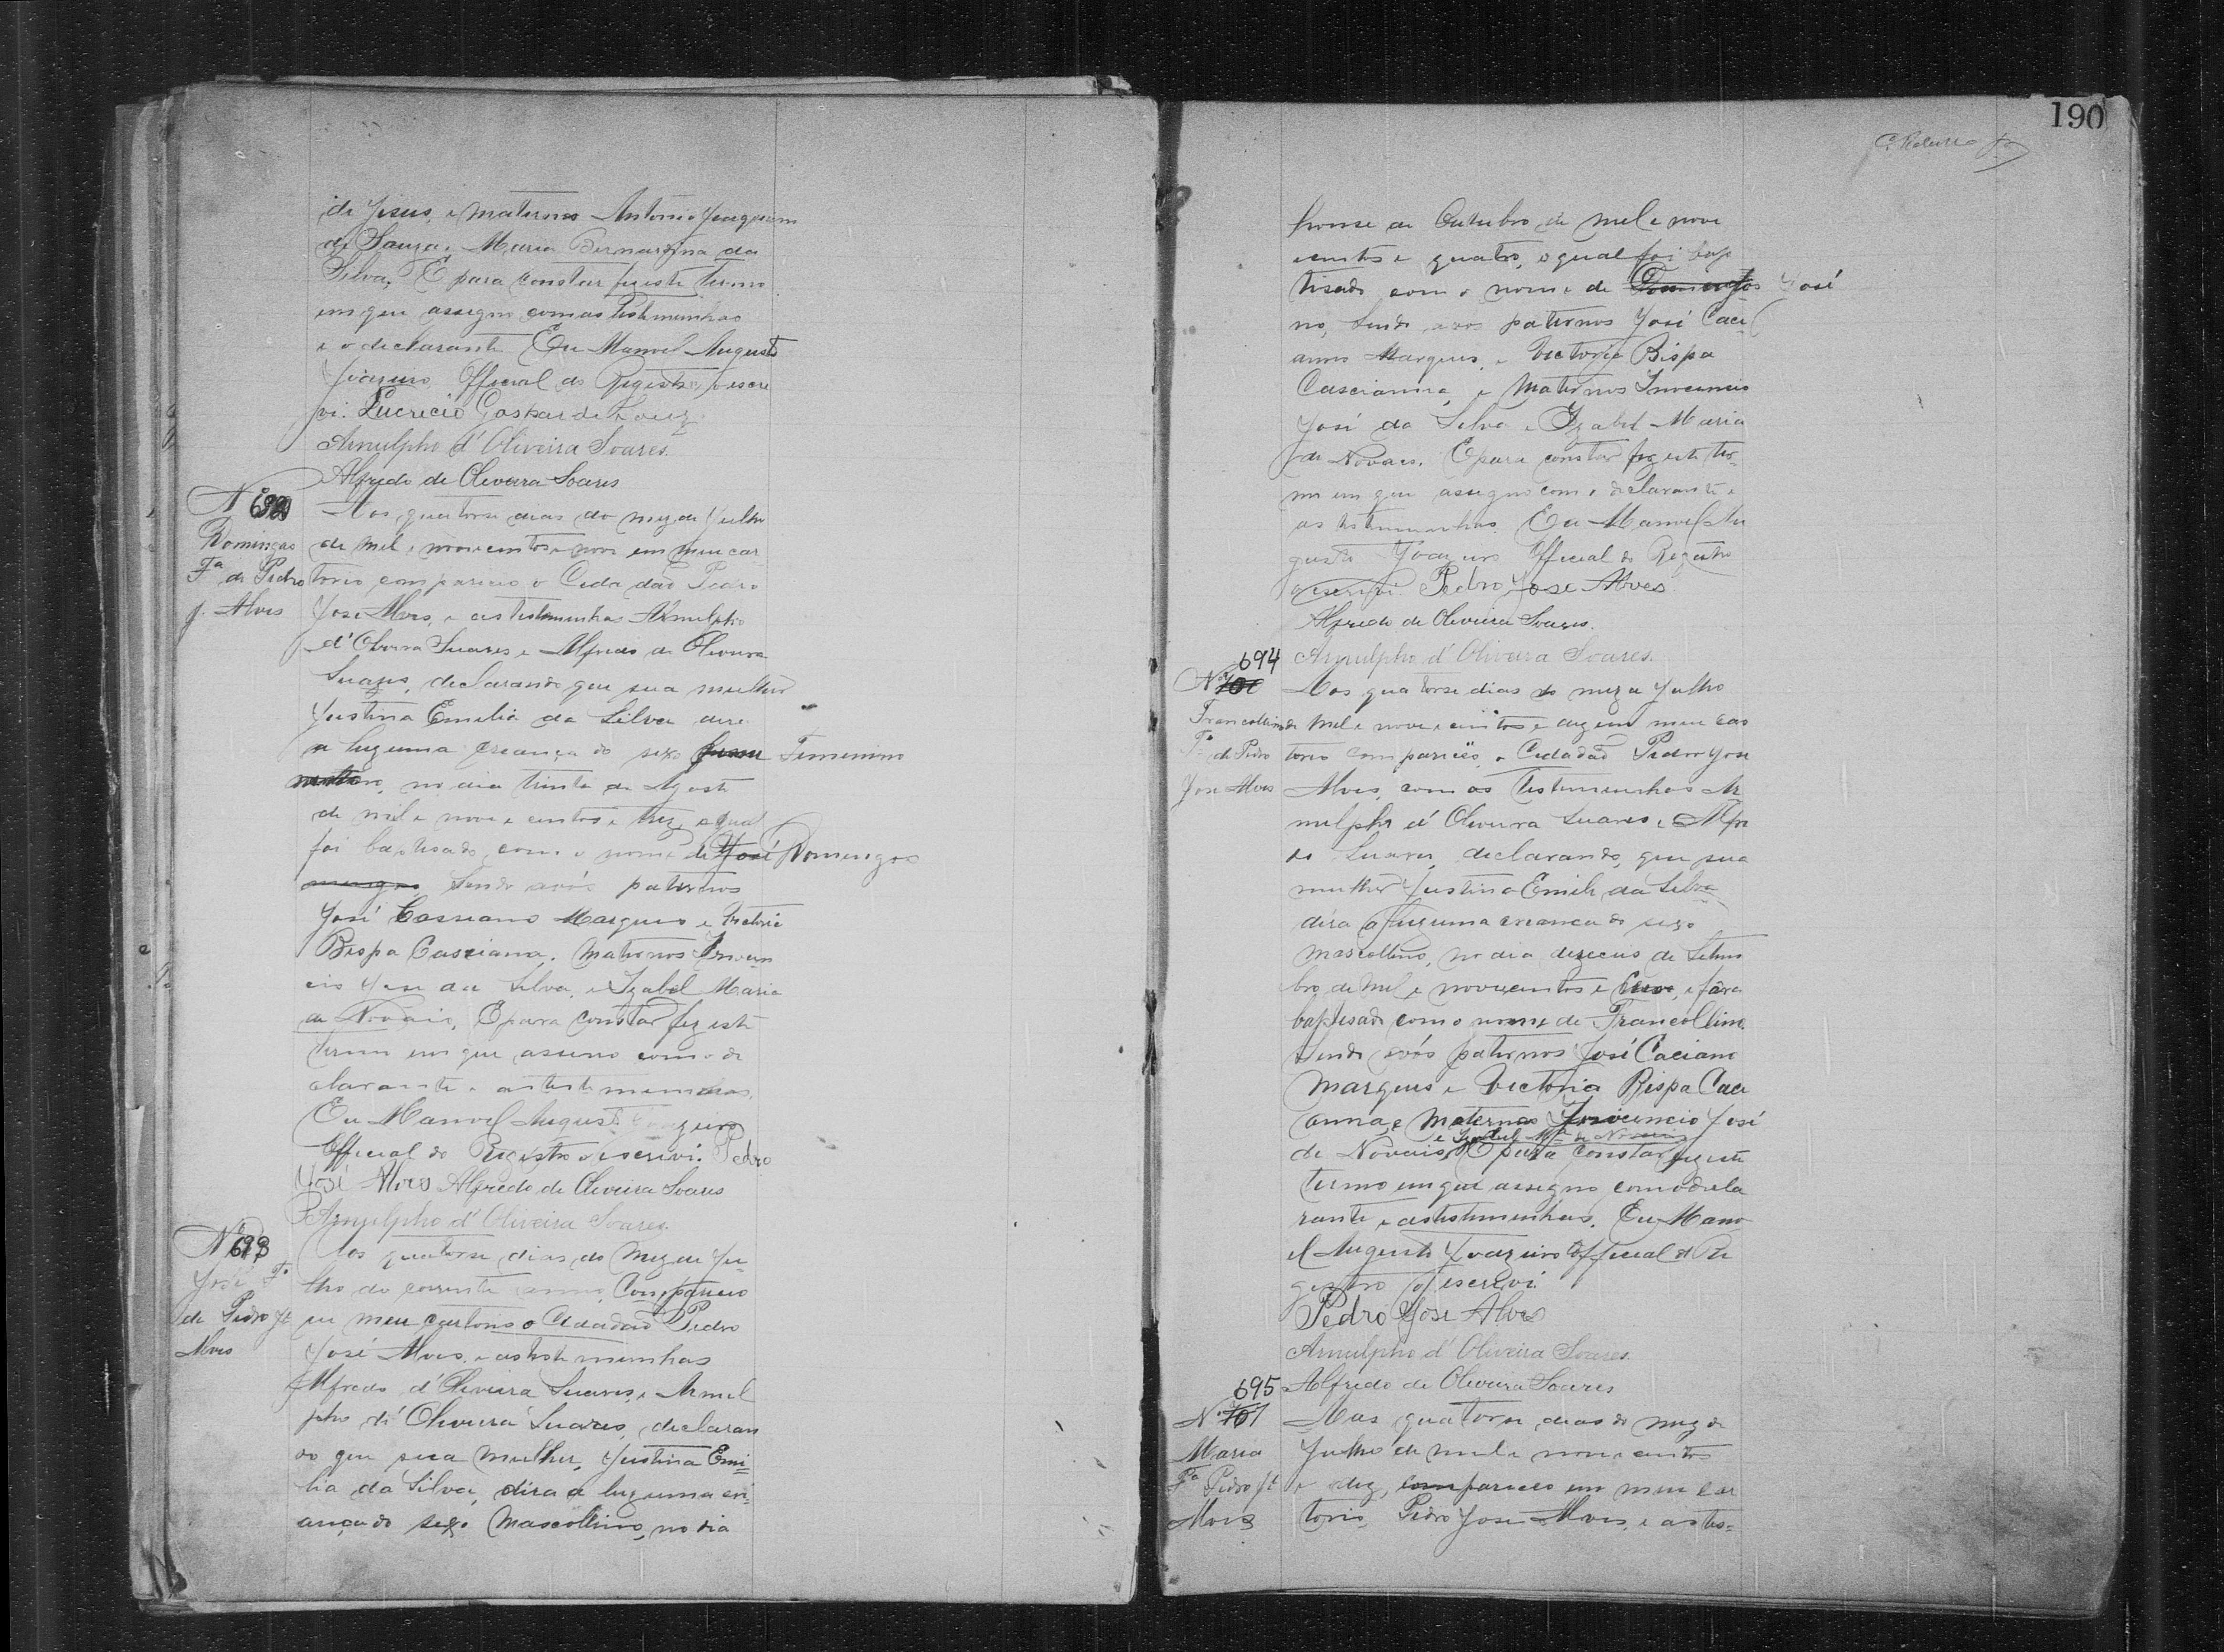 de Jesus, e maternos Antonio Joaquim
de Souza e Maria Bernardina da
Silva. E para constar fiz este termo
em que assigno com as testemunhas
e o declarante. Eu Manoel Augusto
Joazeiro Official do Registro o escre
vi. Lucrecio Gaspar de Souz
Arnulpho d'Oliveira Soares.
Alfredo de Oliveira Soares
Nº
Domingas
Fª de Pedro
J. Alves
Aos quatorse dias do mez de Julho
de mil e novecentos e nove em meu car
torio compareceo o Cidadão Pedro
José Alves, e as testemunhas Arnulpho
d'Oliveira Suares e Alfredo de Oliveira
Suares, declarando que sua mulher
Justina Emilia da Silva dera
a luz uma creança do sexo Femenino
no dia trinta de Agosto
de mil e nove e centos e trez, o qual
foi baptisado com o nome de José Domingas
sendo avós paternos
José Cassiano Marques e Victoria
Bispa Cassiana, maternos Innocen
cio Jose da Silva, e Izabel Maria
de Novais, E para constar fiz este
termo em que assino com o de
clarante e as testemunhas.
Eu Manoel Augusto Joazeiro
Official do Registro o escrevi. Pedro
José Alves Alfredo de Oliveira Soares
Arnulpho d'Oliveira Soares.
Nº 693
José Fº
de Pedro Jé
Alves
Aos quatorse dias do mez de Ju-
lho do corrente anno, Compareceo
em meu cartorio o Cidadão Pedro
José Alves, e as testemunhas
Alfredo d'Oliveira Suares, e Arnul
pho d'Oliveira Suares, declaran
do que sua mulher, Justina Emi=
lia da Silva, dera a luz uma cri=
ança do sexo Mascollino, no dia
190
honse de Outubro de mil e nove
centos e quatro, o qual foi bap
tisado com o nome de Domingos José
no, sendo avos paternos José Caci
anno Marques, e Victoria Bispa
Cascianna, e Maternos Innocencio
José da Silva e Izabel Maria
de Novaes. E para constar fiz este ter-
mo em que assigno com o declarante e
as testemunhas. Eu Manoel Au
gusto Joazeiro Official do Registro
o escrevi. Pedro Jose Alves
Alfredo de Oliveira Soares.
Arnulpho d'Oliveira Soares.
694
Nº
Francollino
Fº de Pedro
José Alves
Aos quatorse dias do mez de Julho
de mil e nove e centos e dez em meu car
torio compareceo o Cidadão Pedro Jose
Alves, com as testemunhas Ar
nulpho d'Oliveira Suares, e Alfre
do Suares, declarando, que sua
mulher Justina Emilia da Silva
déra a luz uma creanca do sexo
mascollino, no dia dezeceis de Setem
bro de mil e novecentos e, e fôra
baptisado com o nome de Francollino
sendo avós paternos José Caciano
Marques e Victoria Bispa Caci
anna, e maternos Innocencio José
e Izabel Mª de Novais
de Novais, E para constar fiz este
termo em que assigno com o decla
rante e as testemunhas. Eu Mano
el Augusto Joazeiro Official do Re
gistro o escrevi.
Pedro Jose Alves
Arnulpho d'Oliveira Soares.
Alfredo de Oliveira Soares
695
Nº 701
Maria
Fª Pedro Jé
Alves
Aos quatorse dias do mez de
Julho de mil e nove centos
e dez, compareceo em meu car
torio, Pedro José Alves, e as tes=